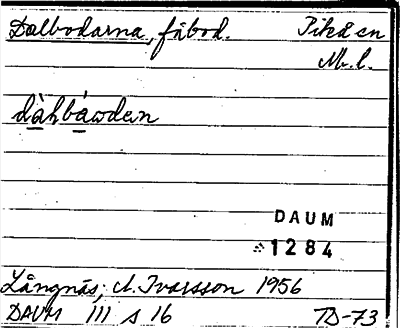 Dalbodarna, fäbod. Piteå en
M.l.
dàhbáwdan
DAUM
1284
Långnäs; A. Ivarsson 1956
DAUM III s 16 TD-73